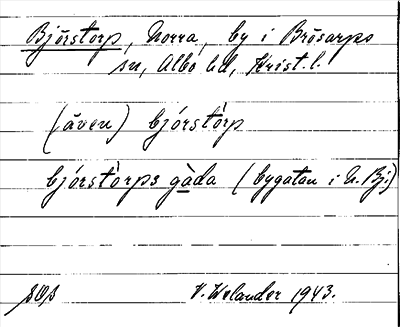 Björstorp, Norra, by i Brösarps
sn, Albo hd, Krist. l.
(även) bjórstòrp
bjórstòrps gàda (bygatan i N. Bj.)
V. Welander 1943.